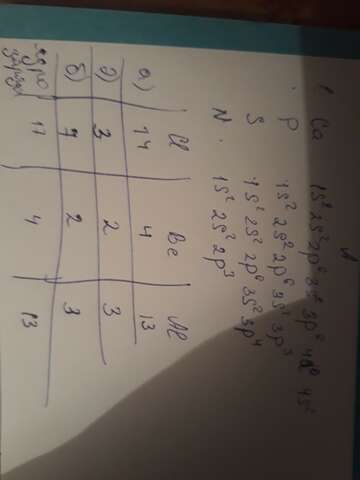 Ca 1s² 2s² 2p⁶ 3s² 3p⁶ 4s²
P 1s² 2s² 2p⁶ 3s² 3p³
S 1s² 2s² 2p⁶ 3s² 3p⁴
N 1s² 2s² 2p³
Cl Be Al
а) 17 4 13
д) 3 2 3
б) 7 2 3
ядро 17 4 13